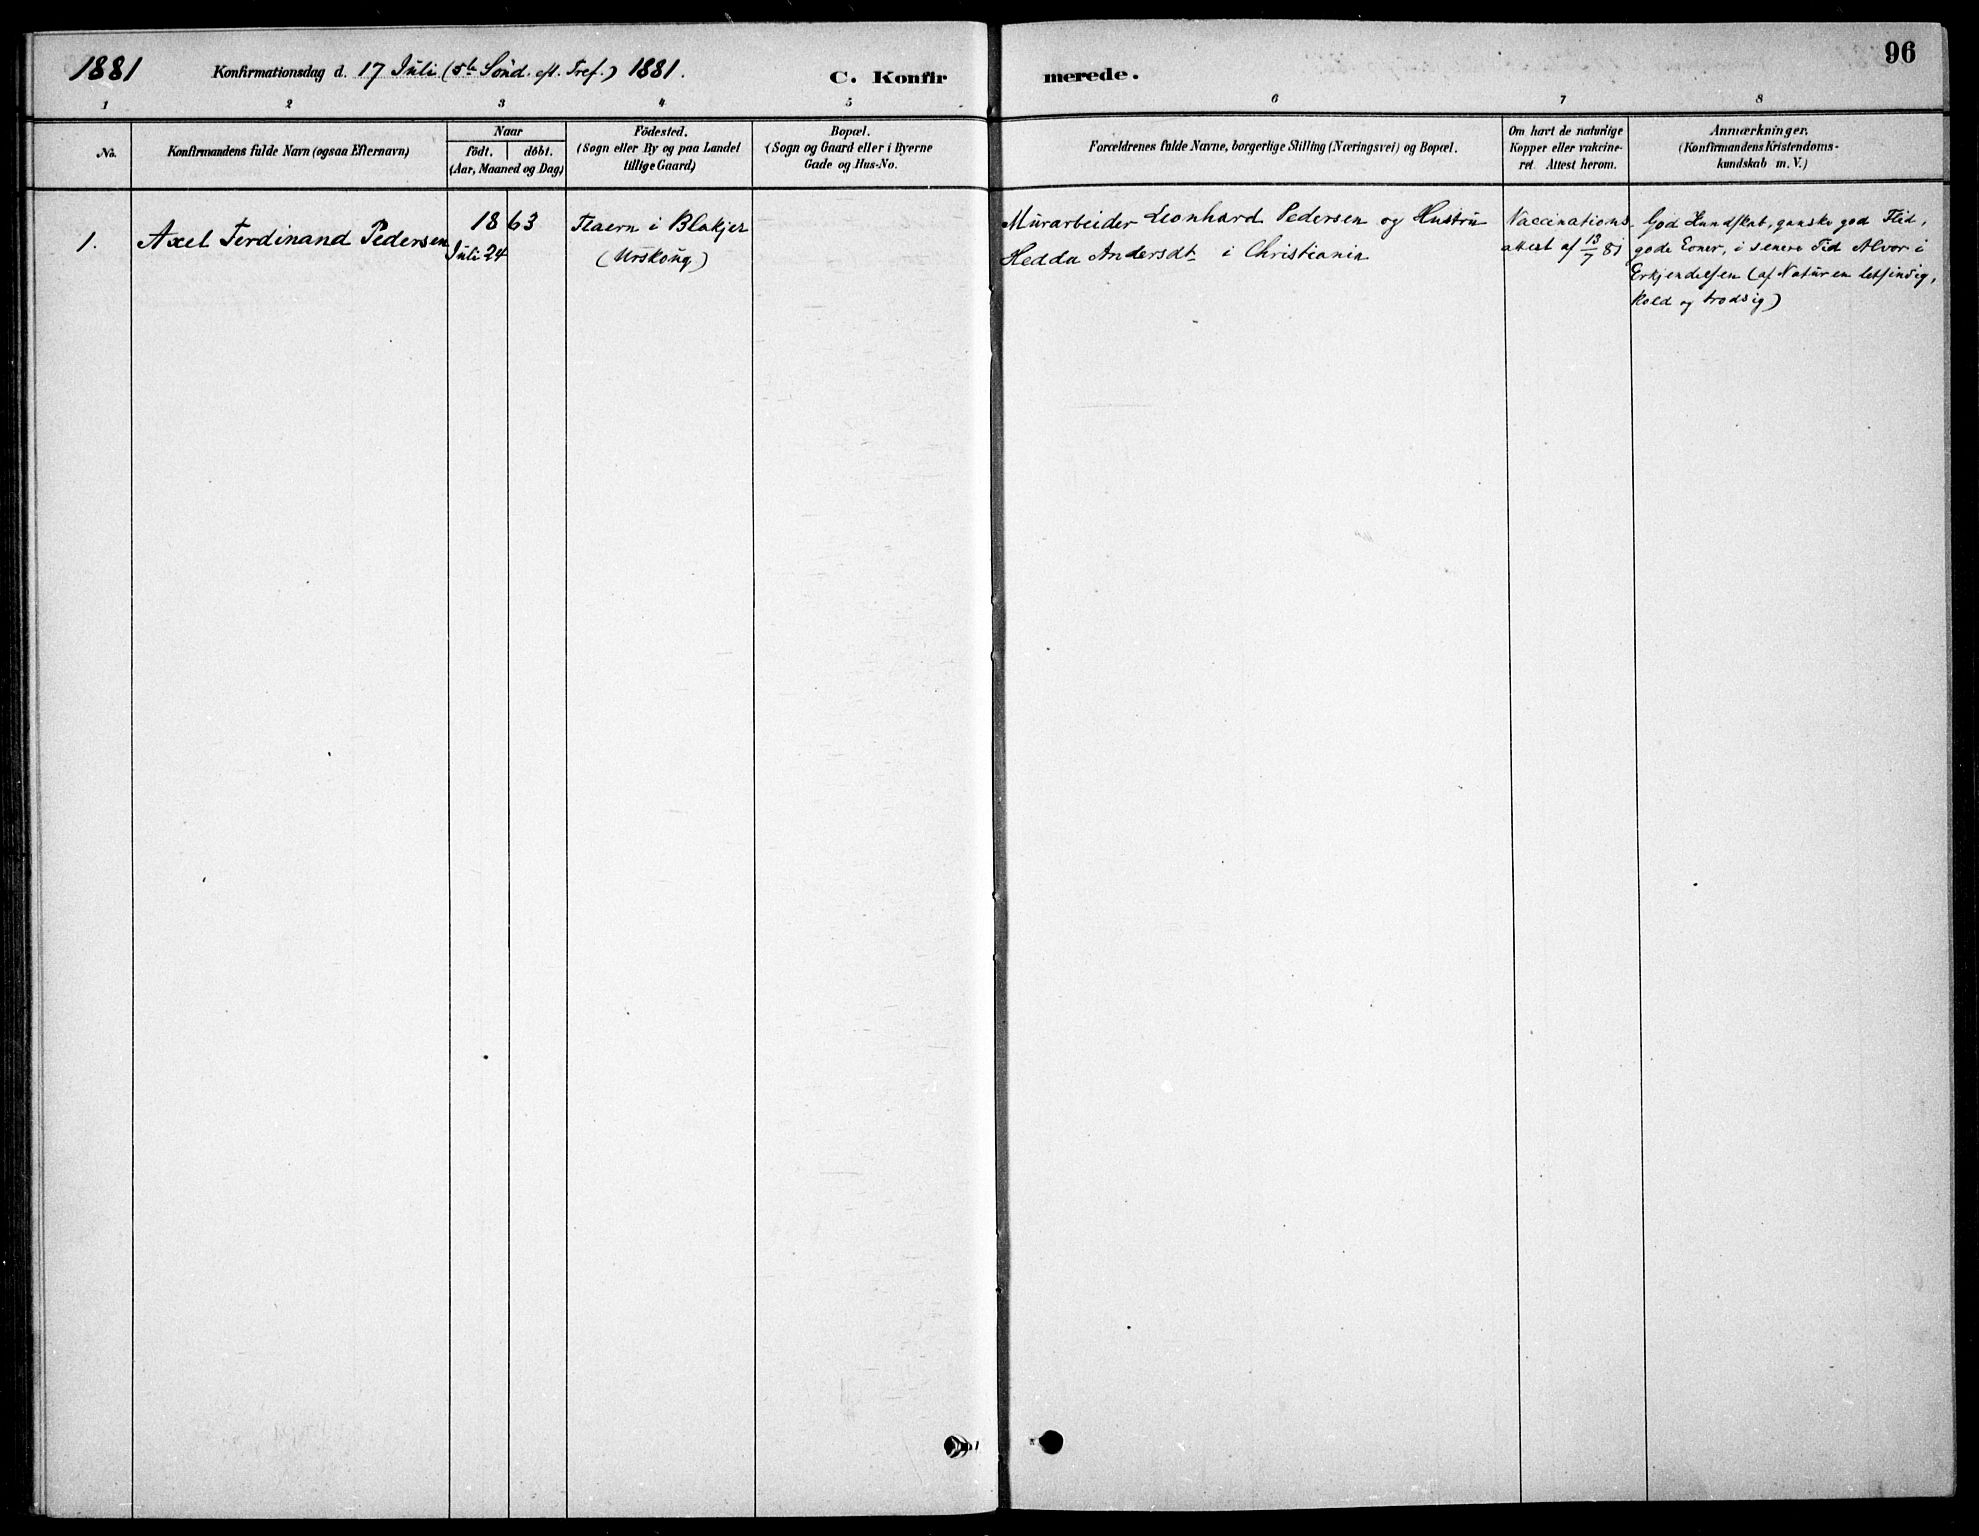 96
1881 Konfirmationsdag d. 17 Juli (5te Sönd. eft. Tref.) 1881. C. Konfir merede.
1 2 3 4 5 6 7 8
No.
Konfirmandens fulde Navn (ogsaa Efternavn)
Naar
födt. döbt.
(Aar, Maaned og Dag)
Födested.
(Sogn eller By og paa Landet
tillige Gaard)
Bopæl.
(Sogn og Gaard eller i Byerne
Gade og Hus-No.
Forældrenes fulde Navne, borgerlige Stilling (Næringsvei) og Bopæl.
Om havt de naturlige
Kopper eller vakcine-
ret. Attest herom.
Anmærkninger.
(Konfirmandens Kristendoms-
kundskab m. V.)
1.
Axel Ferdinand Pedersen
1863
Juli 24
i Blakjer
(Urskoug)
Murarbeider Leonhard Pedersen og Hustru
Hedda Andersdt. i Christiania
Vaccinations
attest af 13/7 81
God Kundskab, ganske god Flid,
gode Evner, i senere Tid Alvor i
Erkjendelsen (af Natur en letsindig,
kold og trodsig)